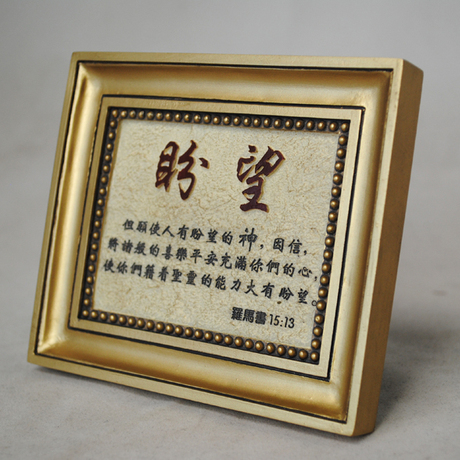 盼望
但願使人有盼望的神，因信，
將諸般的喜樂平安充滿你們的心，
使你們藉着聖靈的能力大有盼望。
羅馬書 15:13